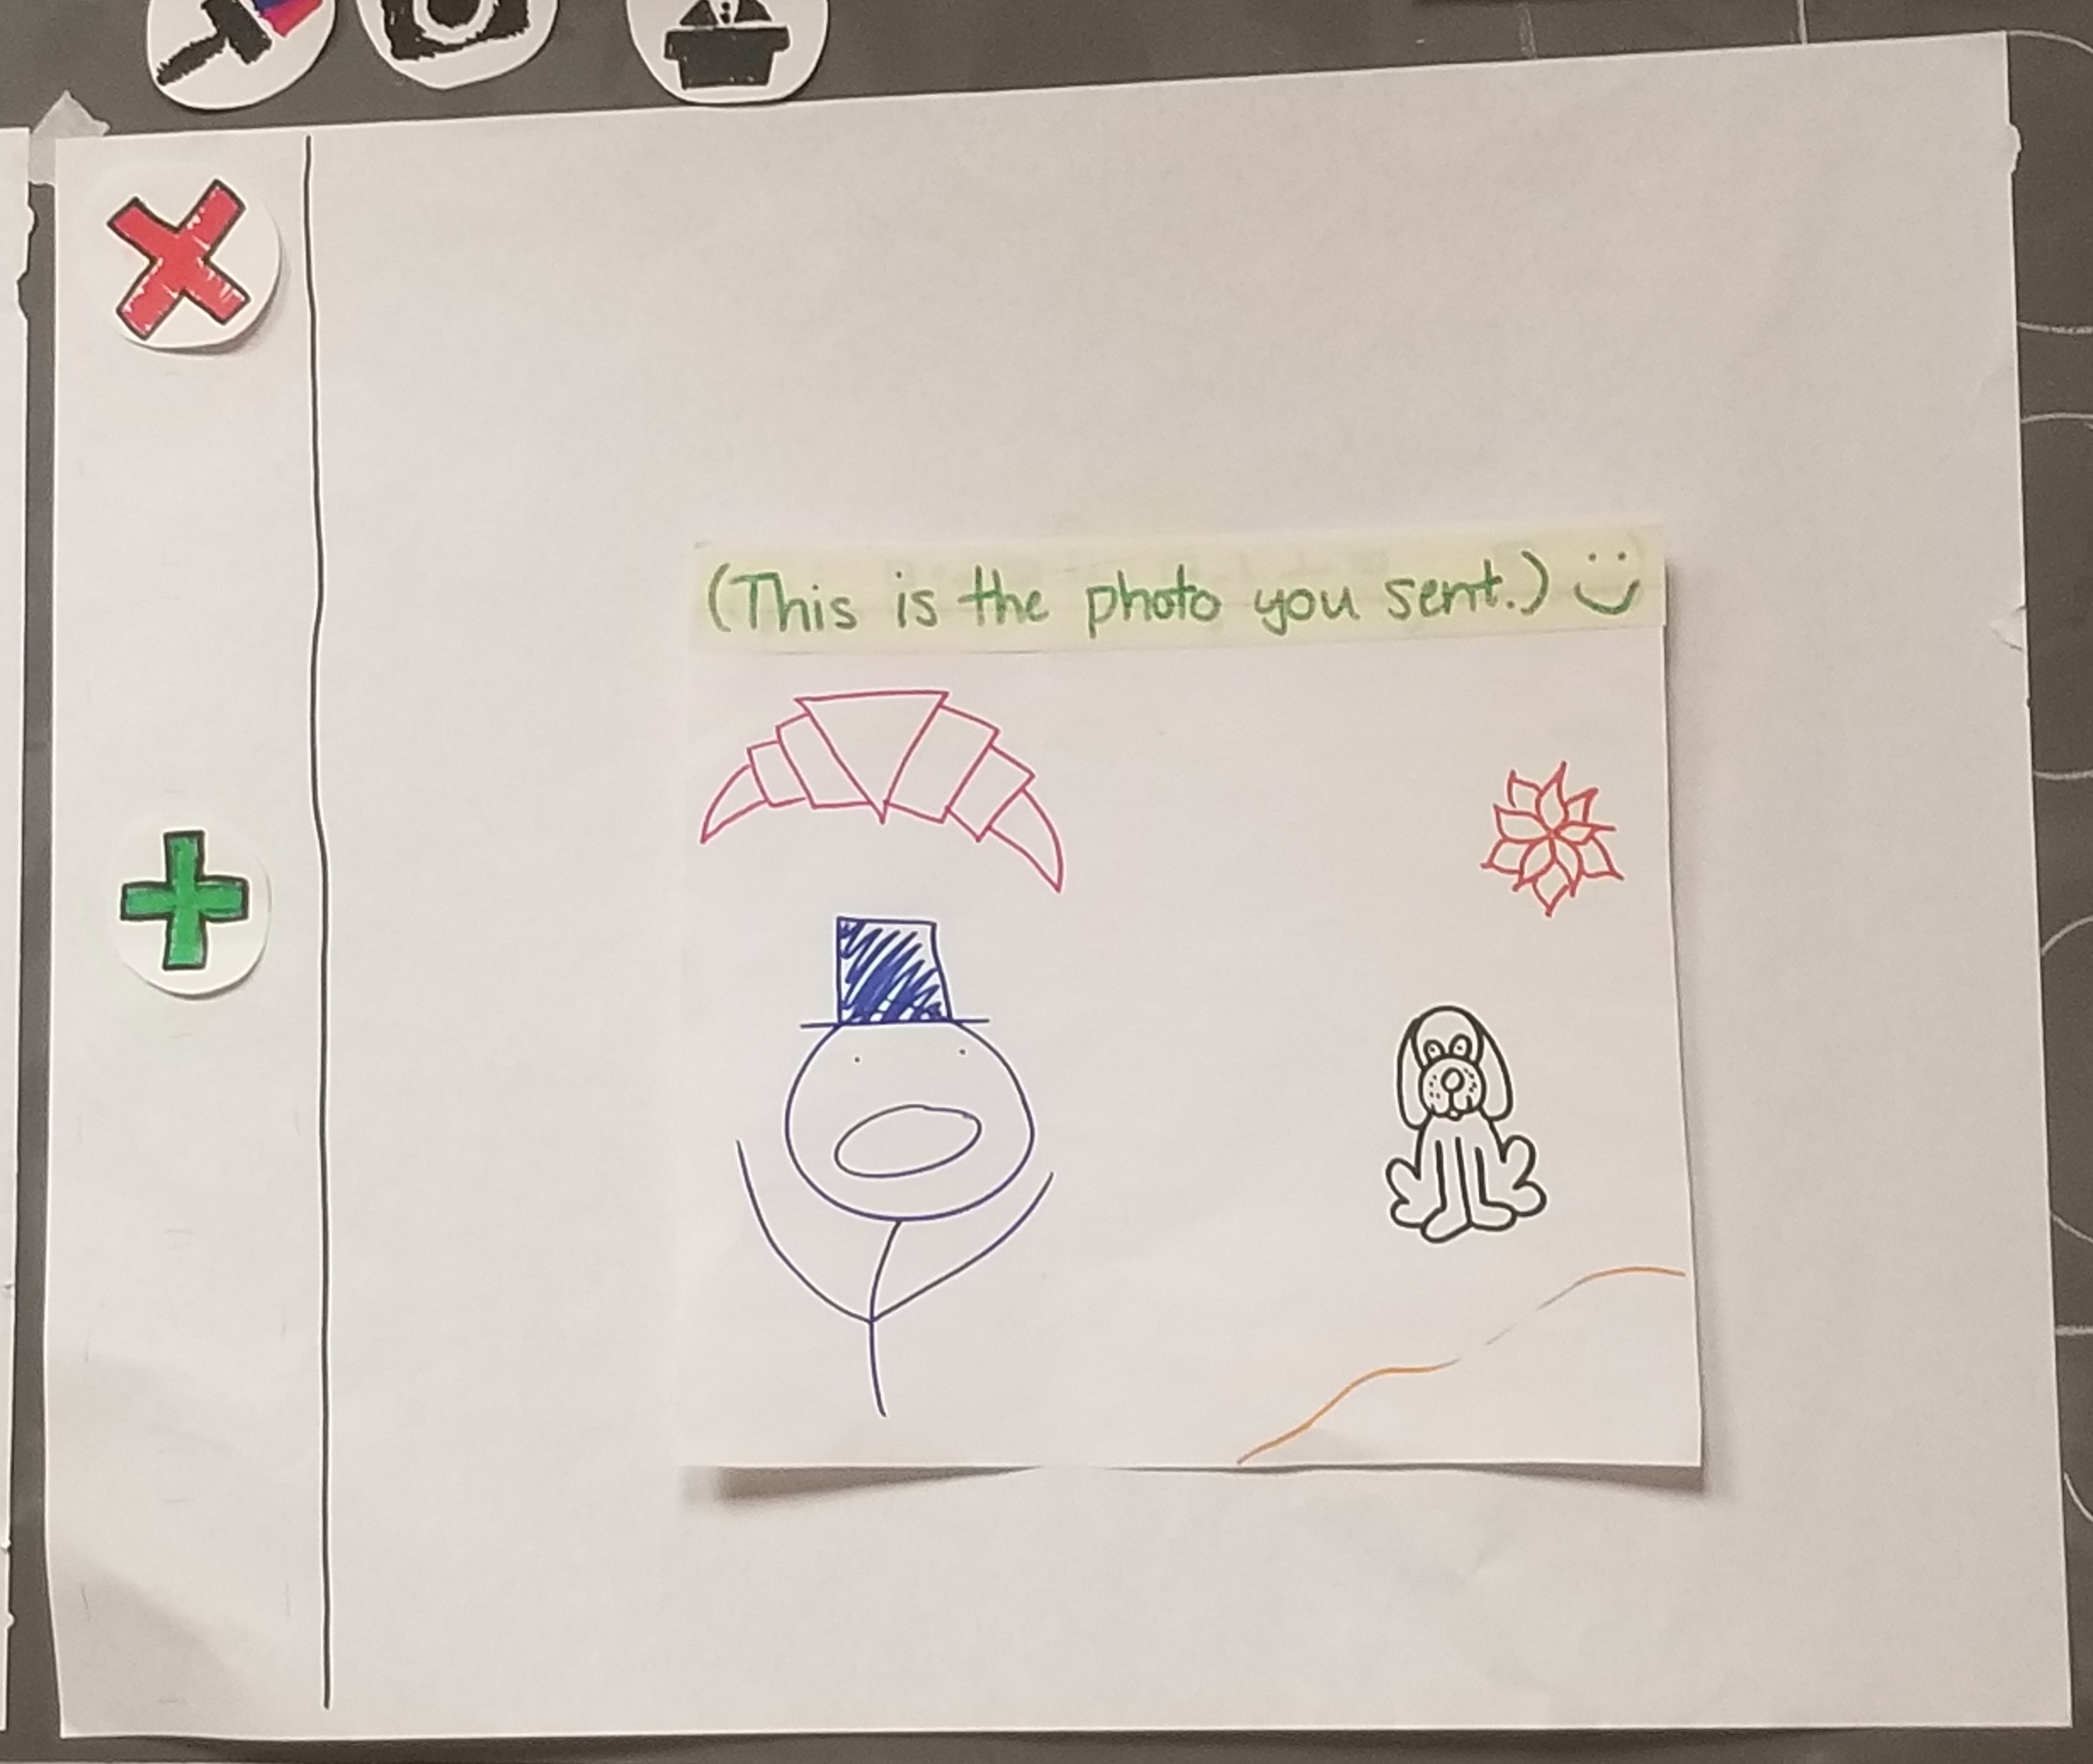 (This is the photo you sent.)